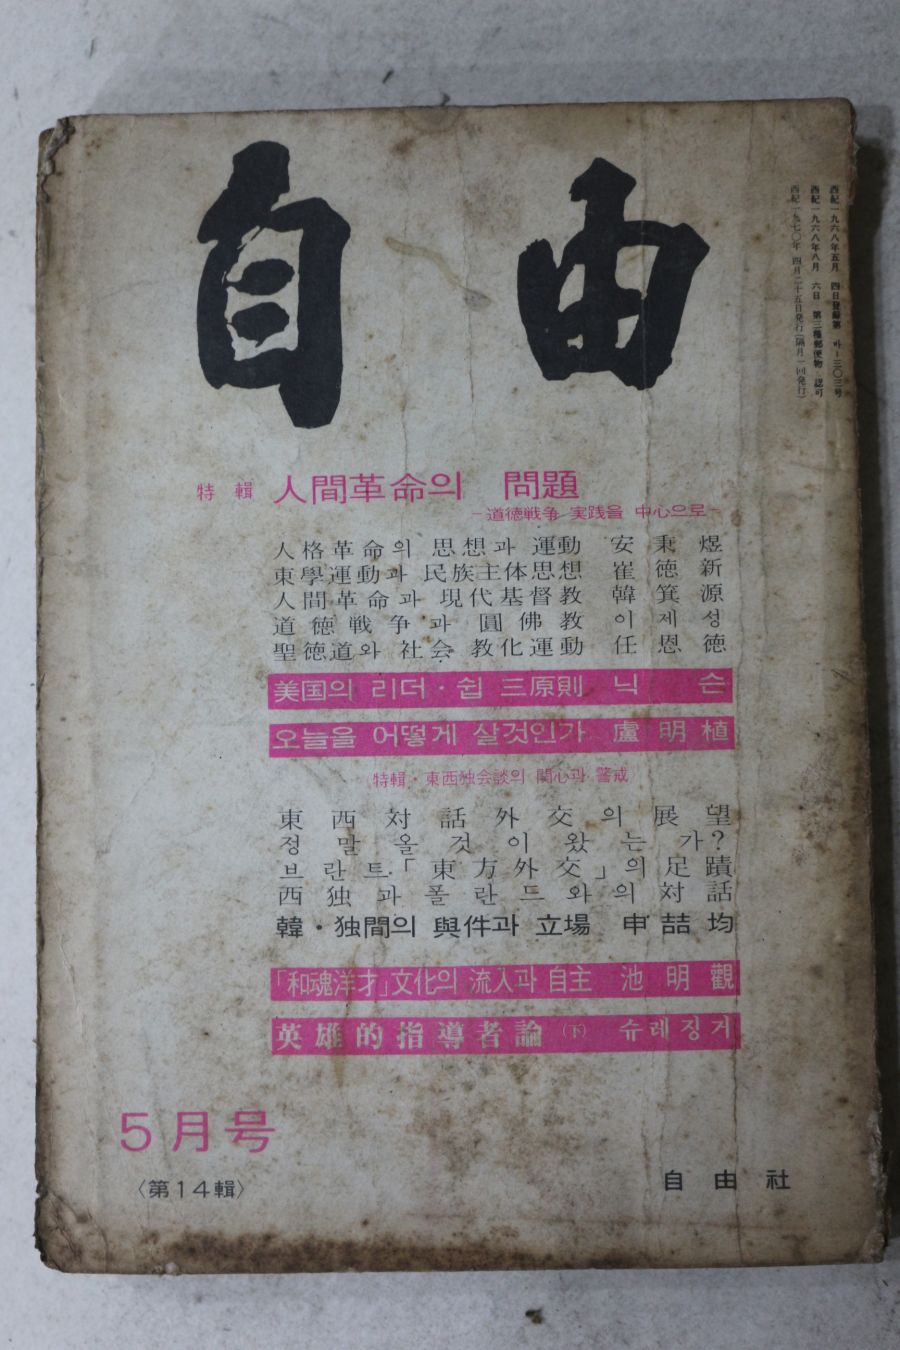 自由
西紀一九六八年五月 四日登録第 마-三〇三号
西紀一九六八年八月 六日 第三種郵便物 認可
西紀一九七〇年 四月二十五日発行(隔月一回発行)
特輯 人間革命의 問題
-道徳戦争 実践을 中心으로-
人格革命의 思想과 運動 安秉煜
東學運動과 民族主体思想 崔徳新
人間革命과 現代基督教 韓箕源
道徳戦争과 圓佛教 이제성
聖徳道와 社会 教化運動 任恩徳
美国의 리더·쉽 三原則 닉슨
오늘을 어떻게 살것인가 盧明植
(特輯·東西独会談의 関心과 警戒)
東西対話外交의 展望
정말 올것이 왔는가?
브란트「東方外交」의 足蹟
西独과 폴란드와의 対話
韓·独間의 與件과 立場 申喆均
「和魂洋才」文化의 流入과 自主 池明觀
英雄的指導者論 (下) 슈레징거
5月号
〈第14輯〉
自由社